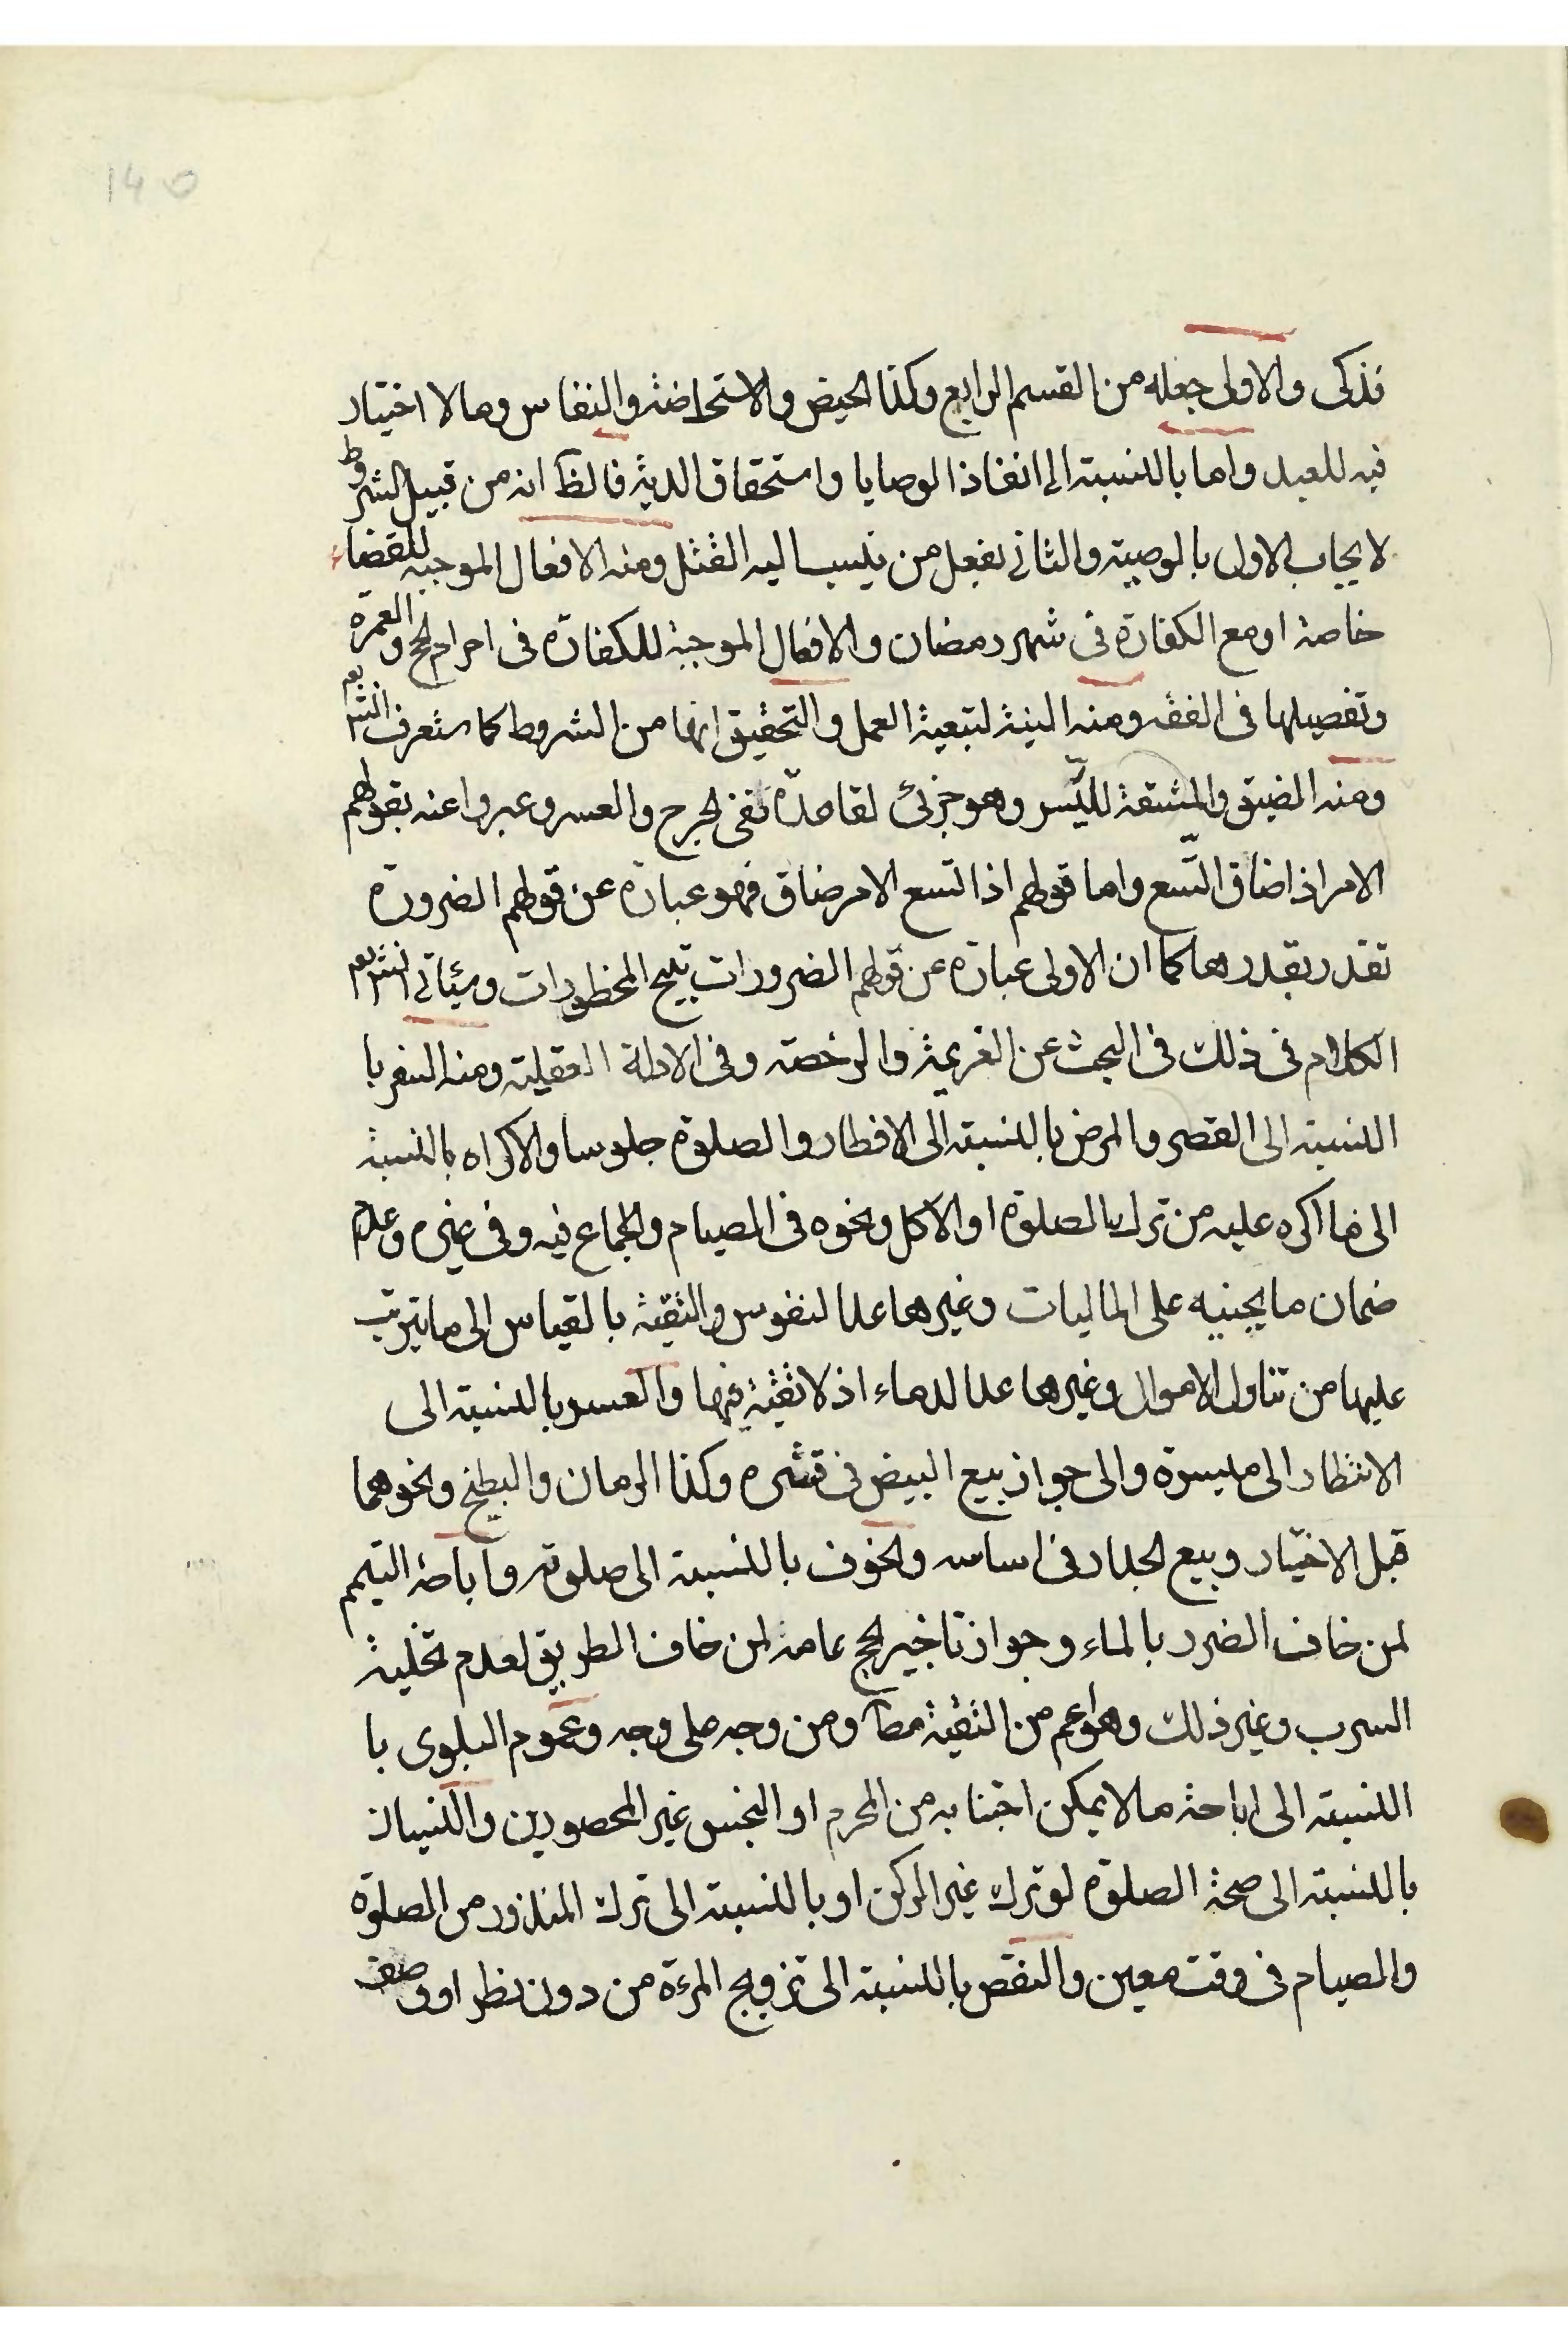 140
فذكى والاولى جعله من القسم الرابع وكذا الحيض والاستحاضة والنفاس ومالا اختيار
فيه للعبد واما بالنسبة الى انفاذ الوصايا واستحقاق الدية فالظ انه من قبيل الشروط
لايجاب الاول بالوصية والثاني بفعل من ينسب اليه القتل ومنه الافعال الموجبة للقضاء
خاصة او مع الكفارة في شهر رمضان والافعال الموجبة للكفارة في احرام الحج والعمرة
وتفصيلها في الفقه ومنه النية لتبعية العمل والتحقيق انها من الشروط كما ستعرف انش تعم
ومنه الضيق والمشقة لليسر وهو جزئي لقاعدة نفى الحرج والعسر وعبروا عنه بقولهم
الامر اذا ضاق اتسع واما قولهم اذا اتسع الامر ضاق فهو عبارة عن قولهم الضرورة
تقدر بقدرها كما ان الاولى عبارة عن قولهم الضرورات تبيح المحظورات وسيأتي انش تعم
الكلام في ذلك في البحث عن العزيمة والرخصة وفي الادلة العقلية ومنه السفر با
النسبة الى القصر والمرض بالنسبة الى الافطار والصلوة جلوسا والاكراه بالنسبة
الى ما اكره عليه من ترك الصلوة او الاكل ونحوه في الصيام والجماع فيه وفي غيره وعدم
ضمان ما يجنيه على الماليات وغيرها عدا النفوس والتقية بالقياس الى ما يترتب
عليها من تناول الاموال وغيرها عدا الدماء اذ لا تقية فيها والعسر بالنسبة الى
الانتظار الى ميسرة والى جواز بيع البيض في قشره وكذا الرمان والبطيخ ونحوهما
قبل الاختبار وبيع الجدار في اساسه والخوف بالنسبة الى صلوته واباحة التيمم
لمن خاف الضرر بالماء وجواز تاخير الحج عامه لمن خاف الطريق لعدم تخلية
السرب وغير ذلك وهو اعم من التقية مط او من وجه على وجه وعموم البلوى با
النسبة الى اباحة ما لا يمكن اجتنابه من المحرم او النجس غير المحصورين والنسيان
بالنسبة الى صحة الصلوة لو ترك غير الركن او بالنسبة الى ترك المنذور من الصلوة
والصيام في وقت معين والنقص بالنسبة الى تزويج المرءة من دون نظر او وصف